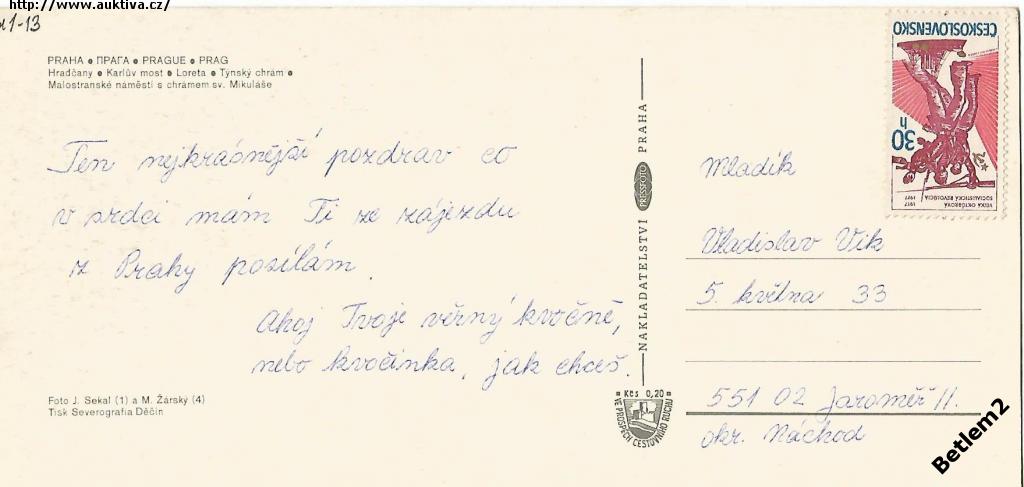 http://www.auktiva.cz/
1-13
PRAHA • ПРАГА • PRAGUE • PRAG
Hradčany • Karlův most • Loreta • Týnský chrám •
Malostranské náměstí s chrámem sv. Mikuláše
Ten nejkrásnější pozdrav co
v srdci mám Ti ze zájezdu
z Prahy posílám.
Ahoj Tvoje věrný kvočně,
nebo kvočinka, jak chceš.
Foto J. Sekal (1) a M. Žárský (4)
Tisk Severografia Děčín
NAKLADATELSTVÍ PRESSFOTO PRAHA
Kčs 0,20
VE PROSPĚCH CESTOVNÍHO RUCHU
ČESKOSLOVENSKO
30 h
VELKÁ ŘÍJNOVÁ
SOCIALISTICKÁ REVOLUCE
1917
1977
Mladík
Vladislav Vik
5. května 33
551 02 Jaroměř II.
okr. Náchod
Betlem2